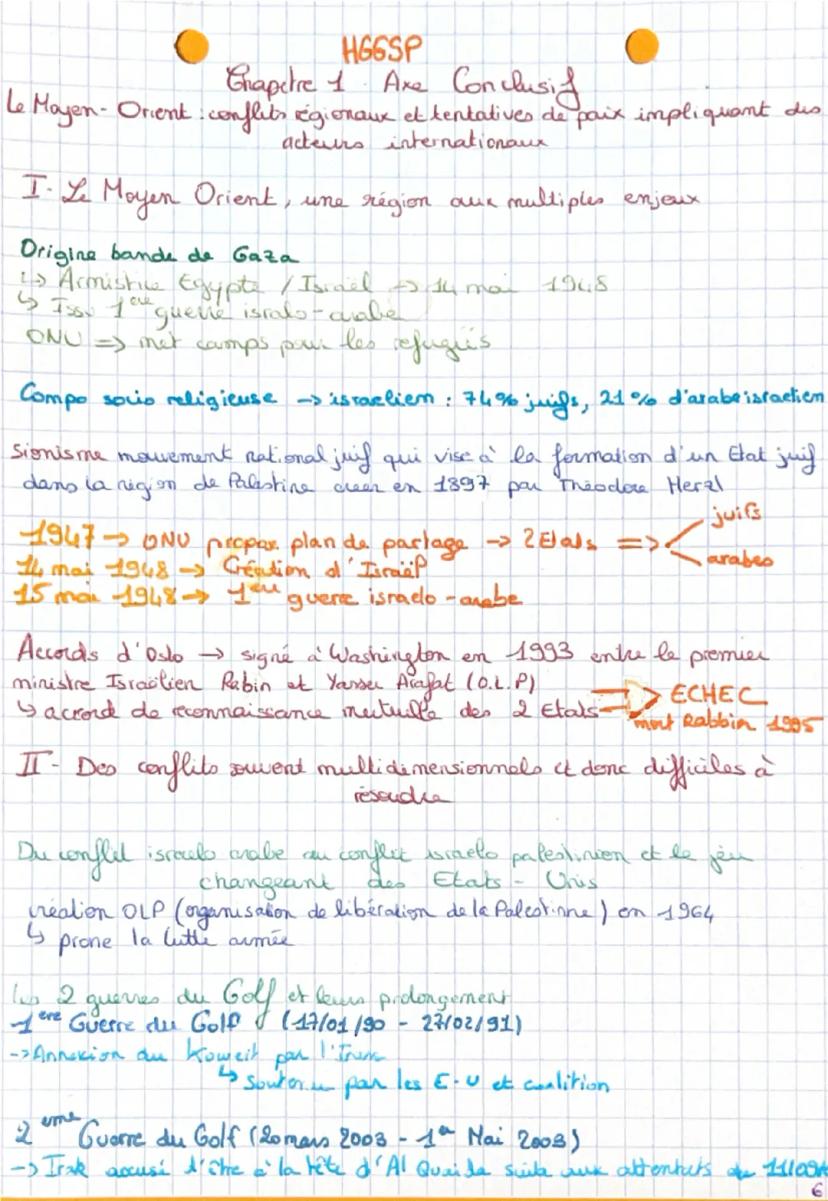 HGGSP
Chapitre 1 Axe Conclusif
Le Moyen-Orient : conflits régionaux et tentatives de paix impliquant des
acteurs internationaux
I- Le Moyen Orient, une région aux multiples enjeux
Origine bande de Gaza
↳ Armistice Egypte / Israël → 14 mai 1948
↳ Issu 1ère guerre israelo-arabe
ONU => met camps pour les réfugiés
Compo socio religieuse → israelien : 74% juifs, 21% d'arabe israelien
Sionisme mouvement national juif qui vise à la formation d'un Etat juif
dans la région de Palestine creer en 1897 par Théodore Herzl
1947 → ONU propose plan de partage → 2 Etats => juifs
arabes
14 mai 1948 → Création d'Israël
15 mai 1948 → 1ère guerre israelo-arabe
Accords d'Oslo → signé à Washington en 1993 entre le premier
ministre Israëlien Rabin et Yasser Arafat (O.L.P)
↳ accord de reconnaissance mutuelle des 2 Etats => ECHEC
mort Rabbin 1995
II- Des conflits souvent multidimensionnels et donc difficiles à
résoudre
Du conflit israelo arabe au conflit israelo palestinien et le jeu
changeant des Etats-Unis
création OLP (organisation de libération de la Palestinne) en 1964
↳ prone la lutte armée
les 2 guerres du Golf et leurs prolongement
1ère Guerre du Golf (17/01/90 - 27/02/91)
→ Annexion du Koweit par l'Irak
↳ Soutenu par les E-U et coalition
2eme Guerre du Golf (20 mars 2003 - 1er Mai 2003)
→ Irak accusé d'être à la tête d'Al Quaida suite aux attentats du 11/09
6